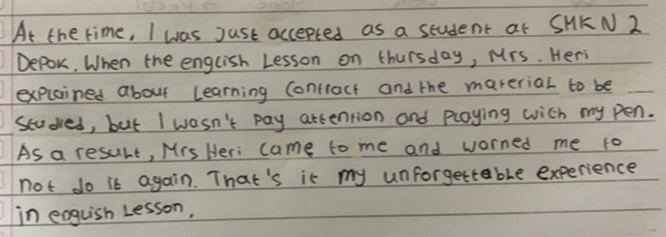 At the time, I was Just accepted as a student at SMKN 2
Depok. When the english Lesson on thursday, Mrs. Heri
explained about Learning Contract and the material to be
studied, but I wasn't pay attention and playing with my pen.
As a result, Mrs Heri came to me and warned me to
not do it again. That's it my unforgettable experience
in english Lesson.